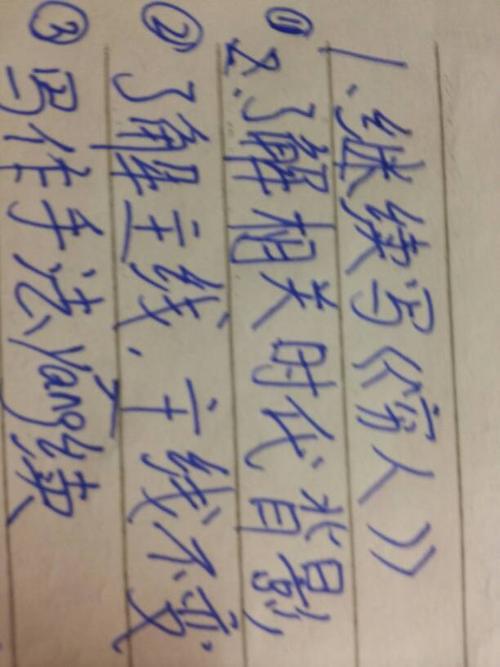 1、继续写《穷人》
① 了解相关时代背影
② 了解主线.主线不变
③ 写作手法yáng续